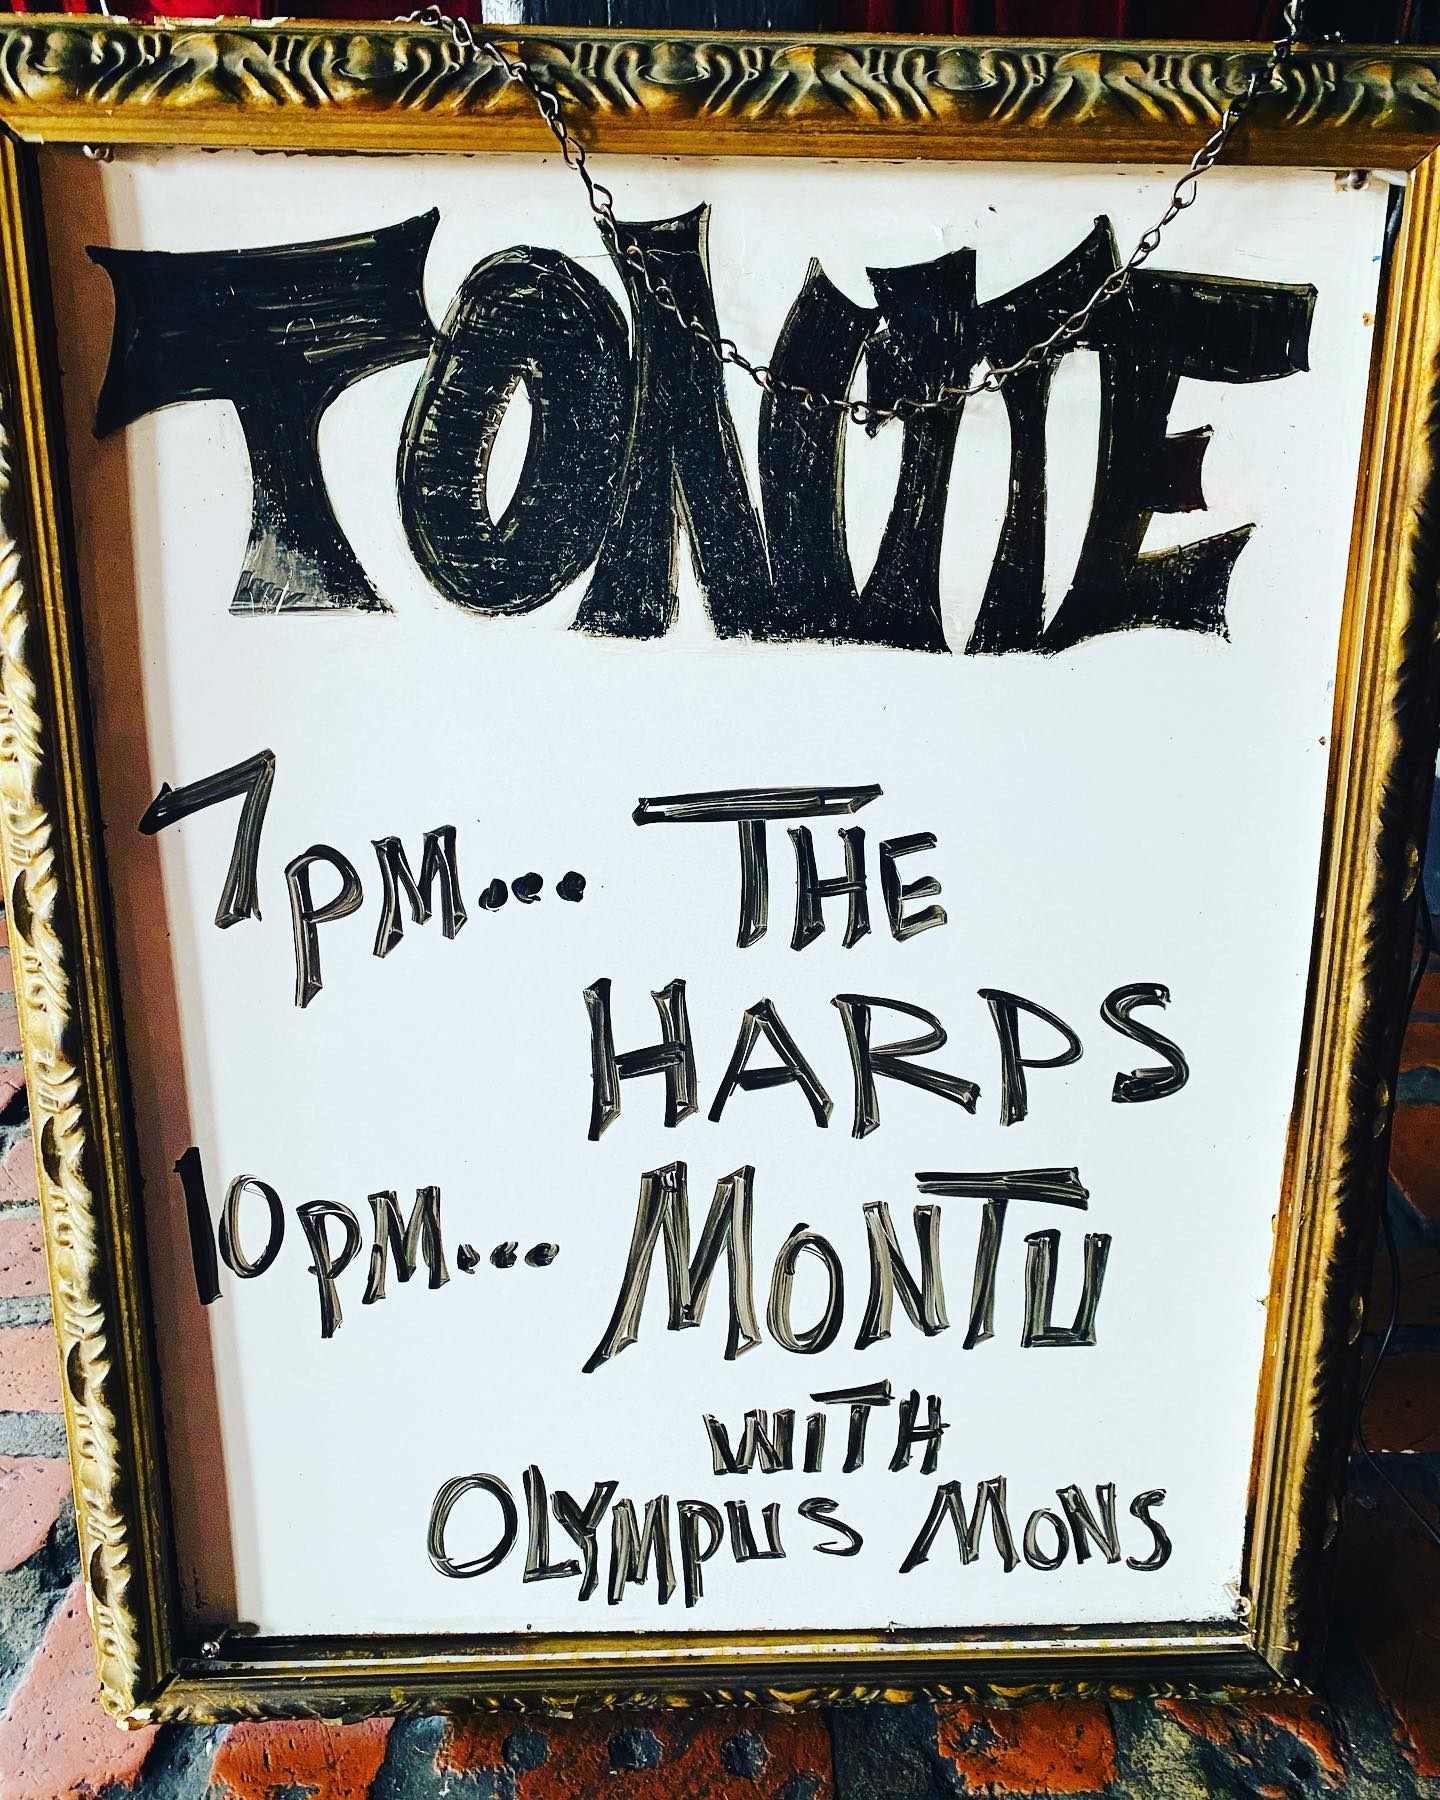 TONITE
7PM... THE
HARPS
10PM... MONTU
WITH
OLYMPUS MONS